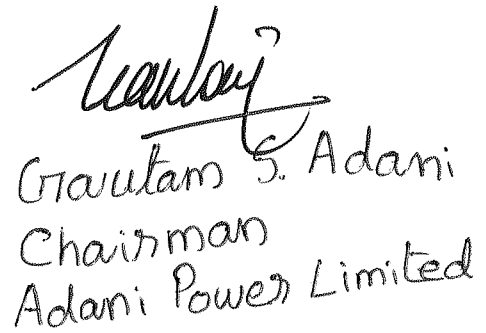 Gautam S. Adani
Chairman
Adani Power Limited